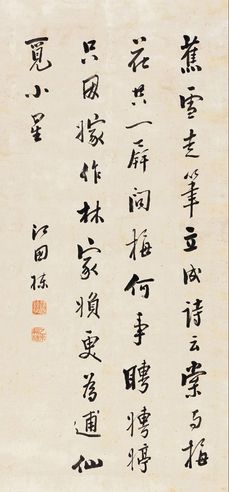 蕉雪走筆立成詩云棠与梅
花共一屏問梅何事聘娉婷
只因嫁作林家婦更為逋仙
覓小星
江國棟